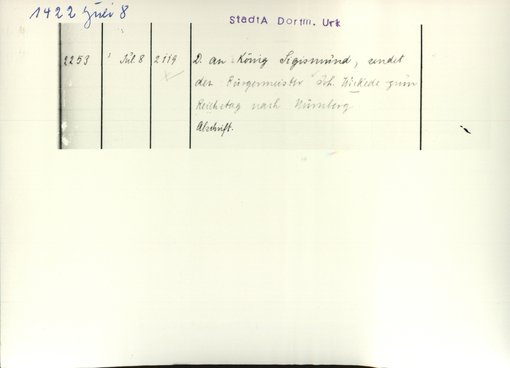 1422 Juli 8
StadtA Dortm. Urk
2253 Jul 8 2119 D. an König Sigismund, sendet
den Bürgermeister Joh. Wickede zum
Reichstag nach Nürnberg
Abschrift.